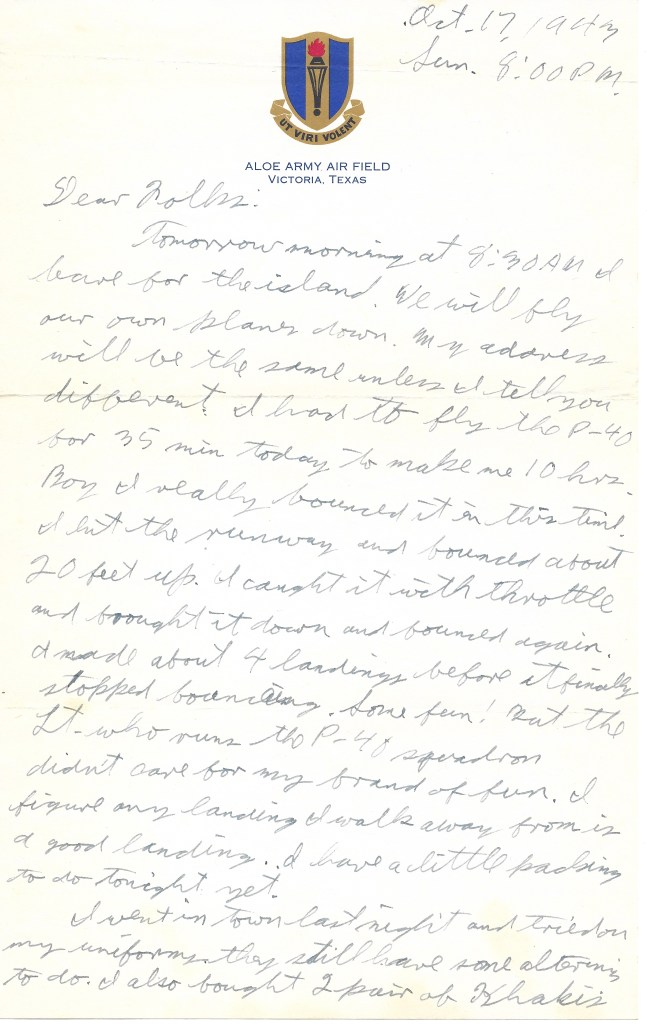 Oct. 17, 1943
Sun. 8:00 PM.
UT VIRI VOLENT
ALOE ARMY AIR FIELD
VICTORIA, TEXAS
Dear Folks:
Tomorrow morning at 8:30 AM I
leave for the island. We will fly
our own planes down. My address
will be the same unless I tell you
different. I had to fly the P-40
for 35 min today to make me 10 hrs.
Boy I really bounced it in this time.
I hit the runway and bounced about
20 feet up. I caught it with throttle
and brought it down and bounced again.
I made about 4 landings before it finally
stopped bouncing. Some fun! But the
Lt. who runs the P-40 squadron
didn't care for my brand of fun. I
figure any landing I walk away from is
a good landing.. I have a little packing
to do tonight yet.
I went in town last night and tried on
my uniforms. they still have some altering
to do. I also bought 2 pair of Khakis